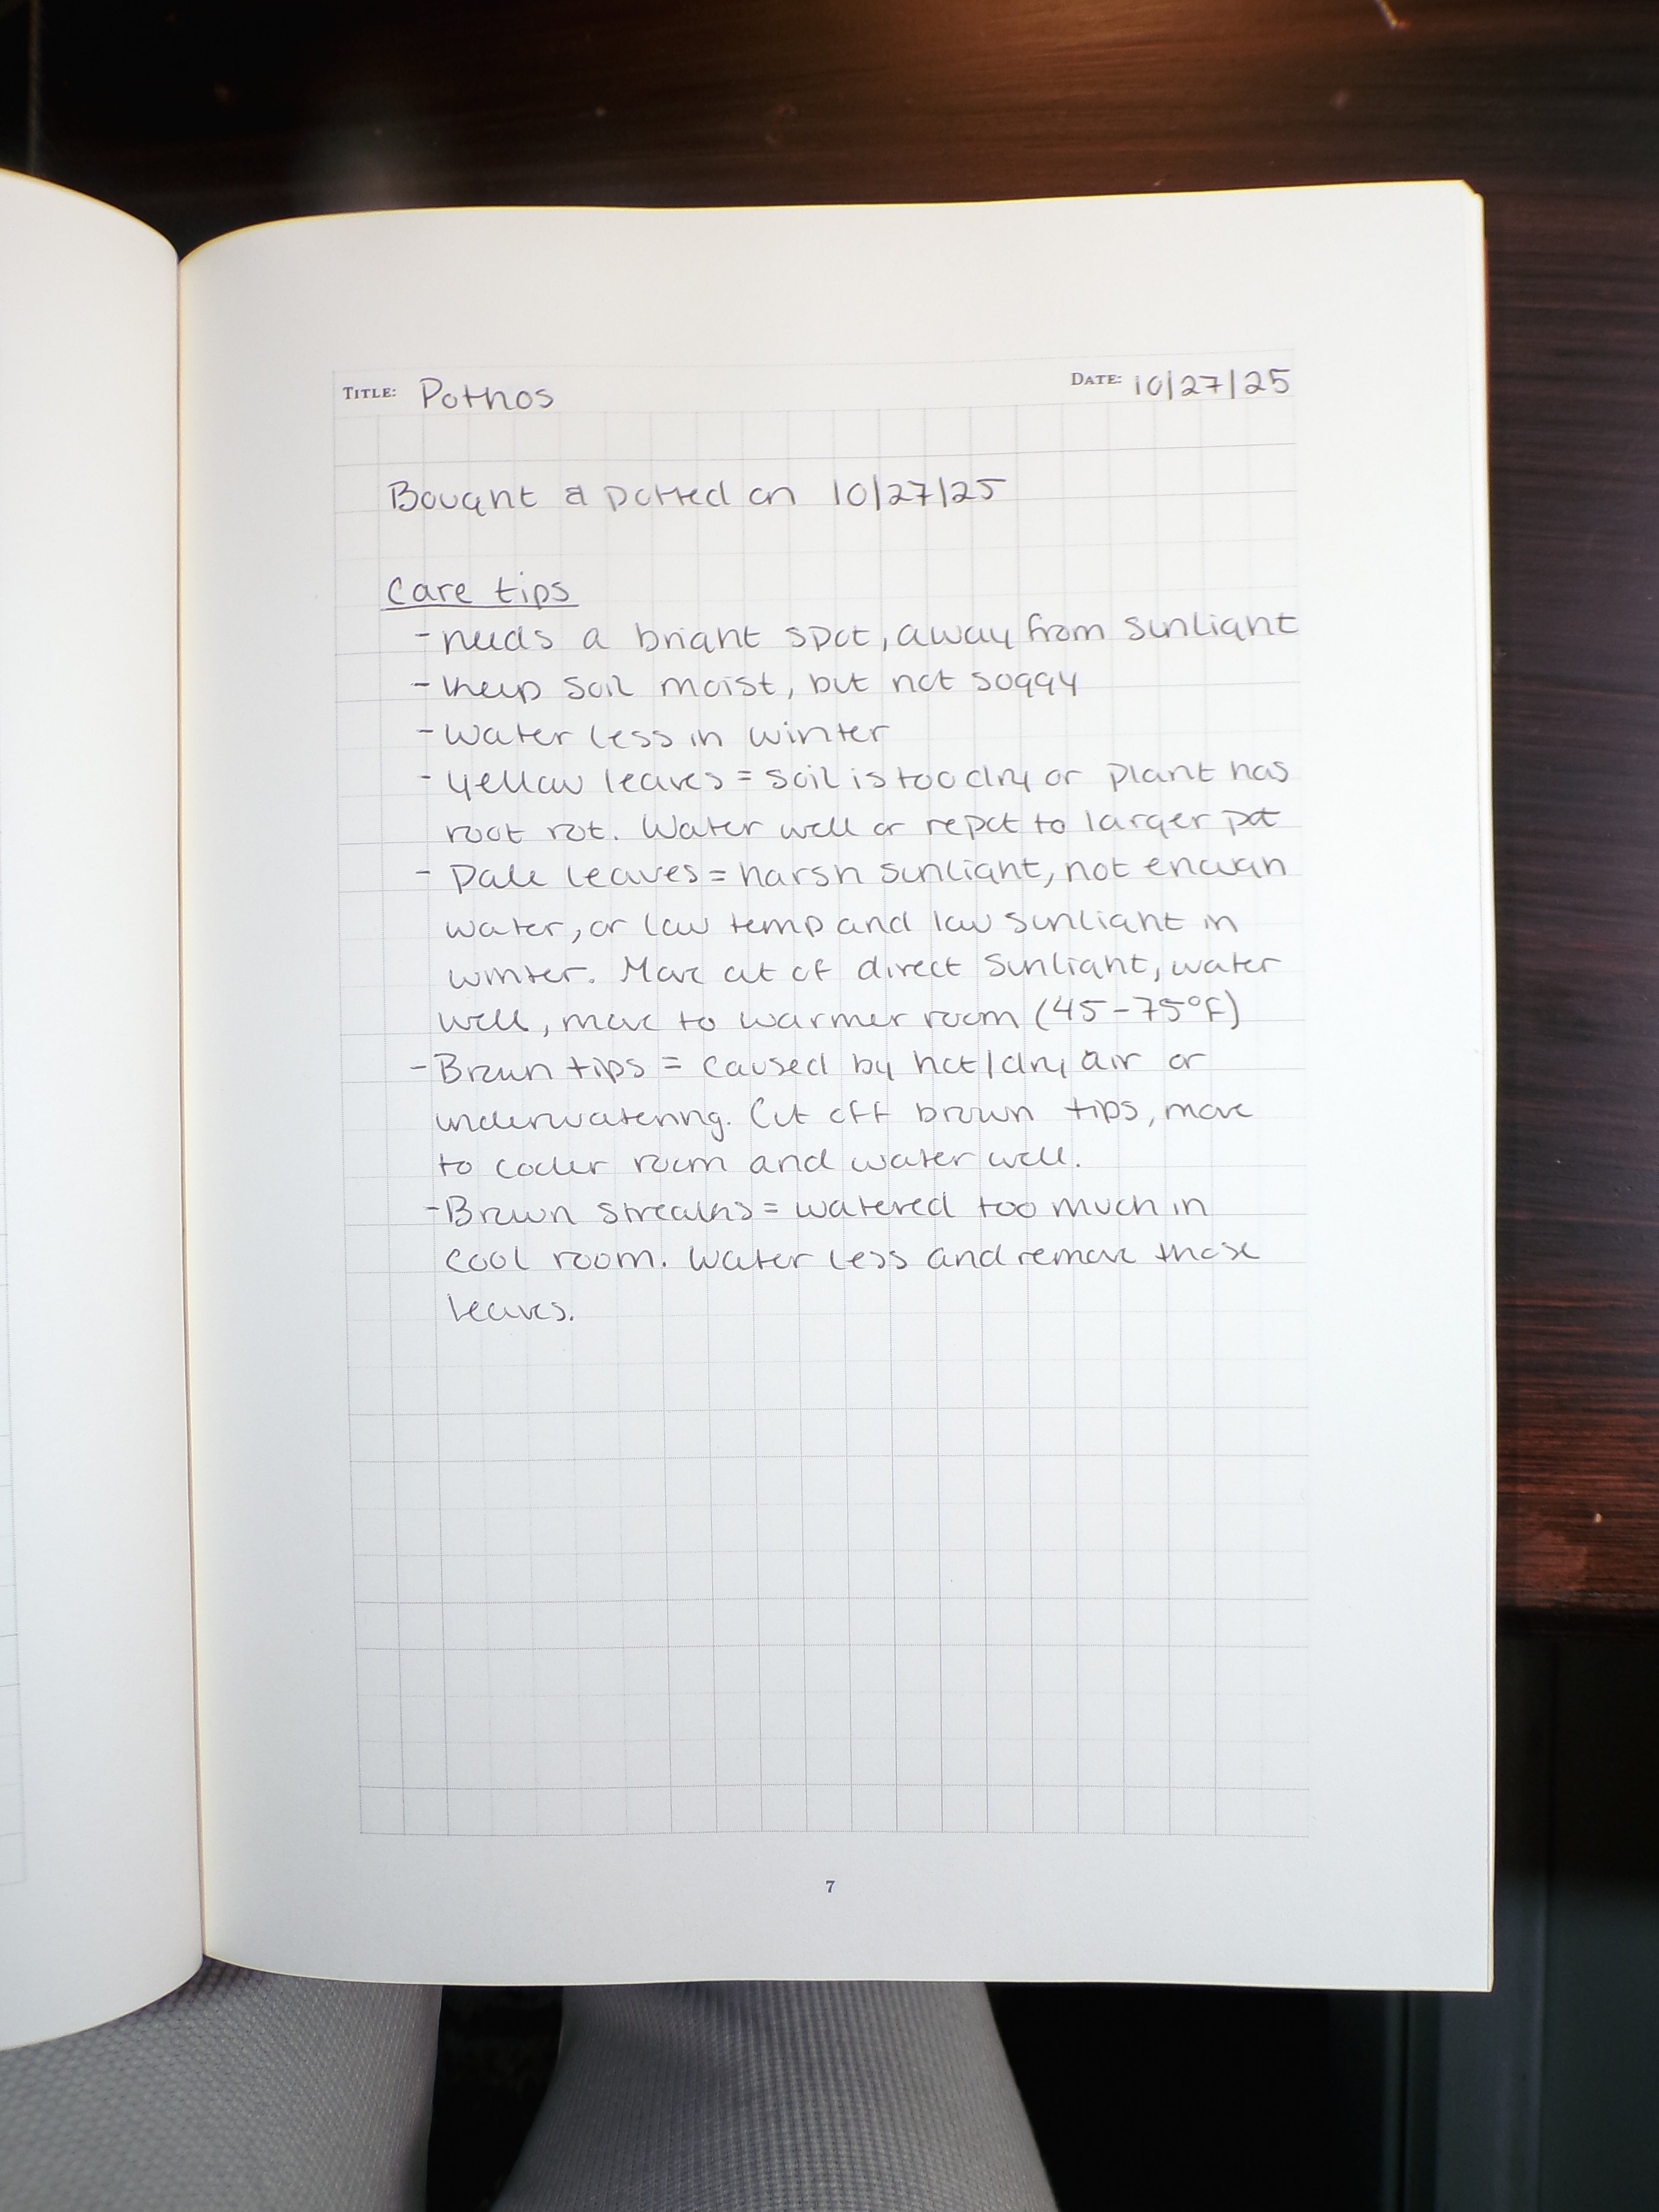 TITLE: Pothos DATE: 10/27/25
Bought & potted on 10/27/25
Care tips
- needs a bright spot, away from sunlight
- Keep soil moist, but not soggy
- Water less in winter
- Yellow leaves = soil is too dry or plant has
root rot. Water well or repot to larger pot
- Pale leaves = harsh sunlight, not enough
water, or low temp and low sunlight in
winter. Move out of direct sunlight, water
well, move to warmer room (45-75°F)
- Brown tips = caused by hot/dry air or
underwatering. Cut off brown tips, move
to cooler room and water well.
- Brown streaks = watered too much in
cool room. Water less and remove those
leaves.
7